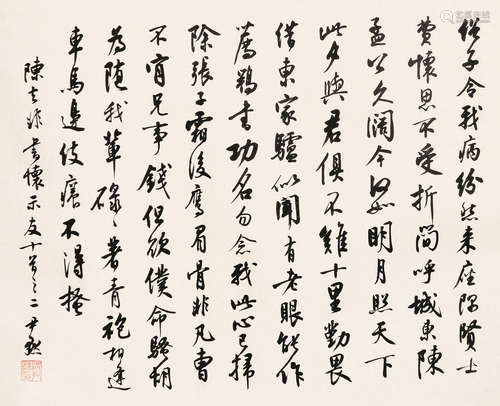 俗子令我病紛然来座隅賢士
費懷思不受折簡呼城東陳
孟公久闊今何如明月照天下
此夕與君俱不難十里勤畏
借東家驢似聞有老眼能作
薦鶚書功名勿念我此心已掃
除張子霜後鷹眉骨非凡曹
不肯兄事錢但欲僕命騷胡
為随我輩碌々著青袍相逢
車馬邊伎癢不得搔
陳去非書懷示友十首之二 尹默